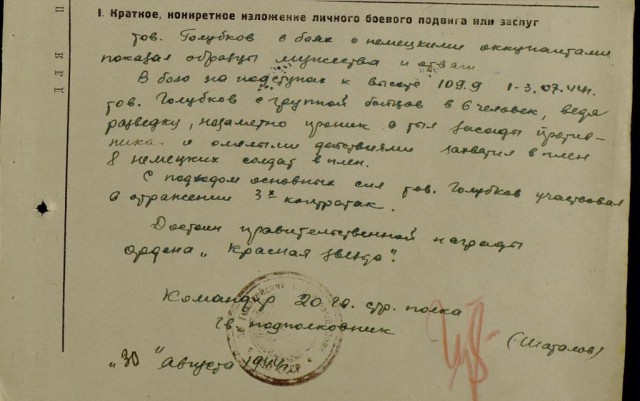 I. Краткое, конкретное изложение личного боевого подвига или заслуг
тов. Голубков в боях с немецкими оккупантами
показал образцы мужества и отваги
В бою на подступах к высоте 109.9 1-3.07.44г.
тов. Голубков с группой бойцов в 6 человек, ведя
разведку, незаметно проник в тыл засады против-
ника и смелыми действиями захватил в плен
8 немецких солдат в плен.
С подходом основных сил тов. Голубков участвовал
в отражении 3х контратак.
Достоин правительственной награды
ордена „Красная звезда".
Командир 20 гв. стр. полка
гв. подполковник
(Шаталов)
„30" Августа 1944г.